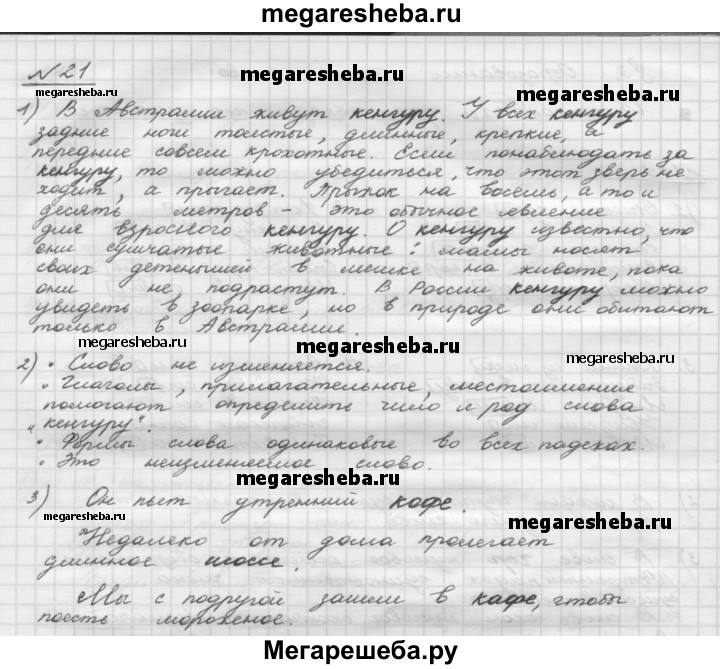 megaresheba.ru
№21
megaresheba.ru
megaresheba.ru
megaresheba.ru
1) В Австралии живут кенгуру. У всех кенгуру
задние ноги толстые, длинные, крепкие, а
передние совсем крохотные. Если понаблюдать за
кенгуру, то можно убедиться, что этот зверь не
ходит, а прыгает. Прыжок на восемь, а то и
десять метров - это обычное явление
для взрослого кенгуру. О кенгуру известно, что
они сумчатые животные: мамы носят
своих детенышей в мешке на животе, пока
они не подрастут. В России кенгуру можно
увидеть в зоопарке, но в природе они обитают
только в Австралии.
megaresheba.ru
megaresheba.ru
2) • Слово не изменяется.
• Глаголы, прилагательные, местоимение
помогают определить число и род слова
"кенгуру".
• Формы слова одинаковые во всех падежах.
• Это неизменяемое слово.
megaresheba.ru
3) Он пьет утренний кофе.
megaresheba.ru
megaresheba.ru
Недалеко от дома пролегает
длинное шоссе.
Мы с подругой зашли в кафе, чтобы
поесть мороженое.
Мегарешеба.ру